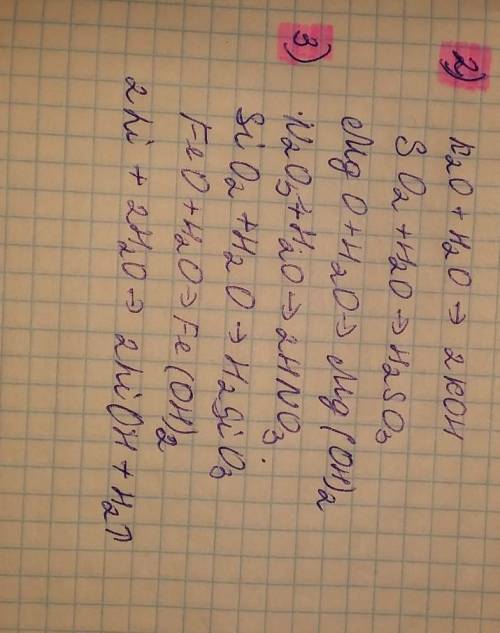 2) K2O + H2O → 2KOH
SO2 + H2O → H2SO3
MgO + H2O → Mg(OH)2
3) N2O5 + H2O → 2HNO3.
SiO2 + H2O → H2SiO3
FeO + H2O → Fe(OH)2
2Li + 2H2O → 2LiOH + H2↑